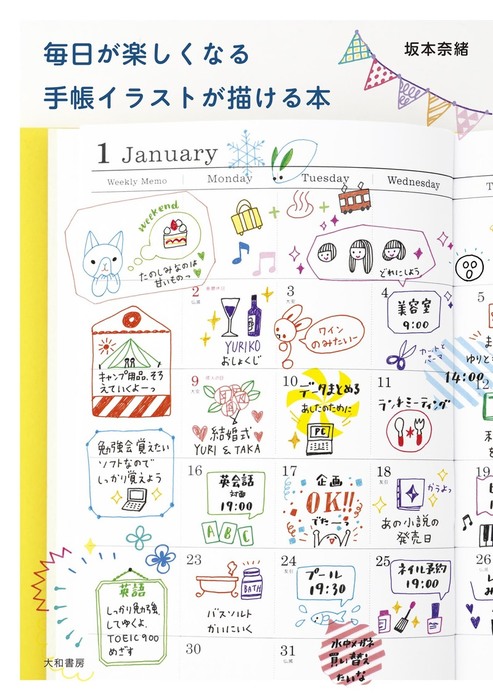 毎日が楽しくなる
手帳イラストが描ける本
坂本奈緒
1 January
Weekly Memo
Monday
Tuesday
Wednesday
T
weekend
たのしみなのは
甘いもの〜っ
どれにしよう
2
仏滅
YURIKO
おしょくじ
3
大安
ワイン
のみたいー
4
美容室
9:00
カットと
パーマ
5
14:00
キャンプ用品、そろ
えていくよーっ
9
大安
結婚式
YURI & TAKA
10
データまとめる
あしたのために
PC
11
ランチミーティング
12
勉強会 覚えたい
ソフトなので
しっかり覚えよう
16
英会話
19:00
ABC
17
企画
OK!!
でたーっ
18
友引
かうよっ
あの小説の
発売日
19
英語
しっかり勉強、
してゆくよ。
TOEIC 900
めざす
23
BATH
バスソルト
かいにいく
24
友引
プール
19:30
25
ネイル予約
19:00
26
30
31
仏滅
水中メガネ
買い替え
たいな
大和書房